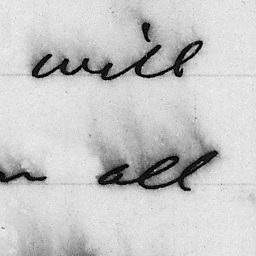 will
all